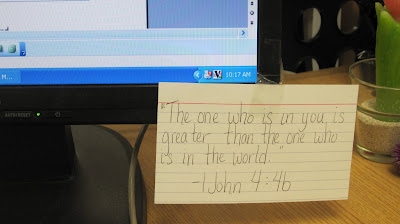 M...
10:17 AM
AUTO/RESET
"The one who is in you is
greater than the one who
is in the world."
-1 John 4:4b